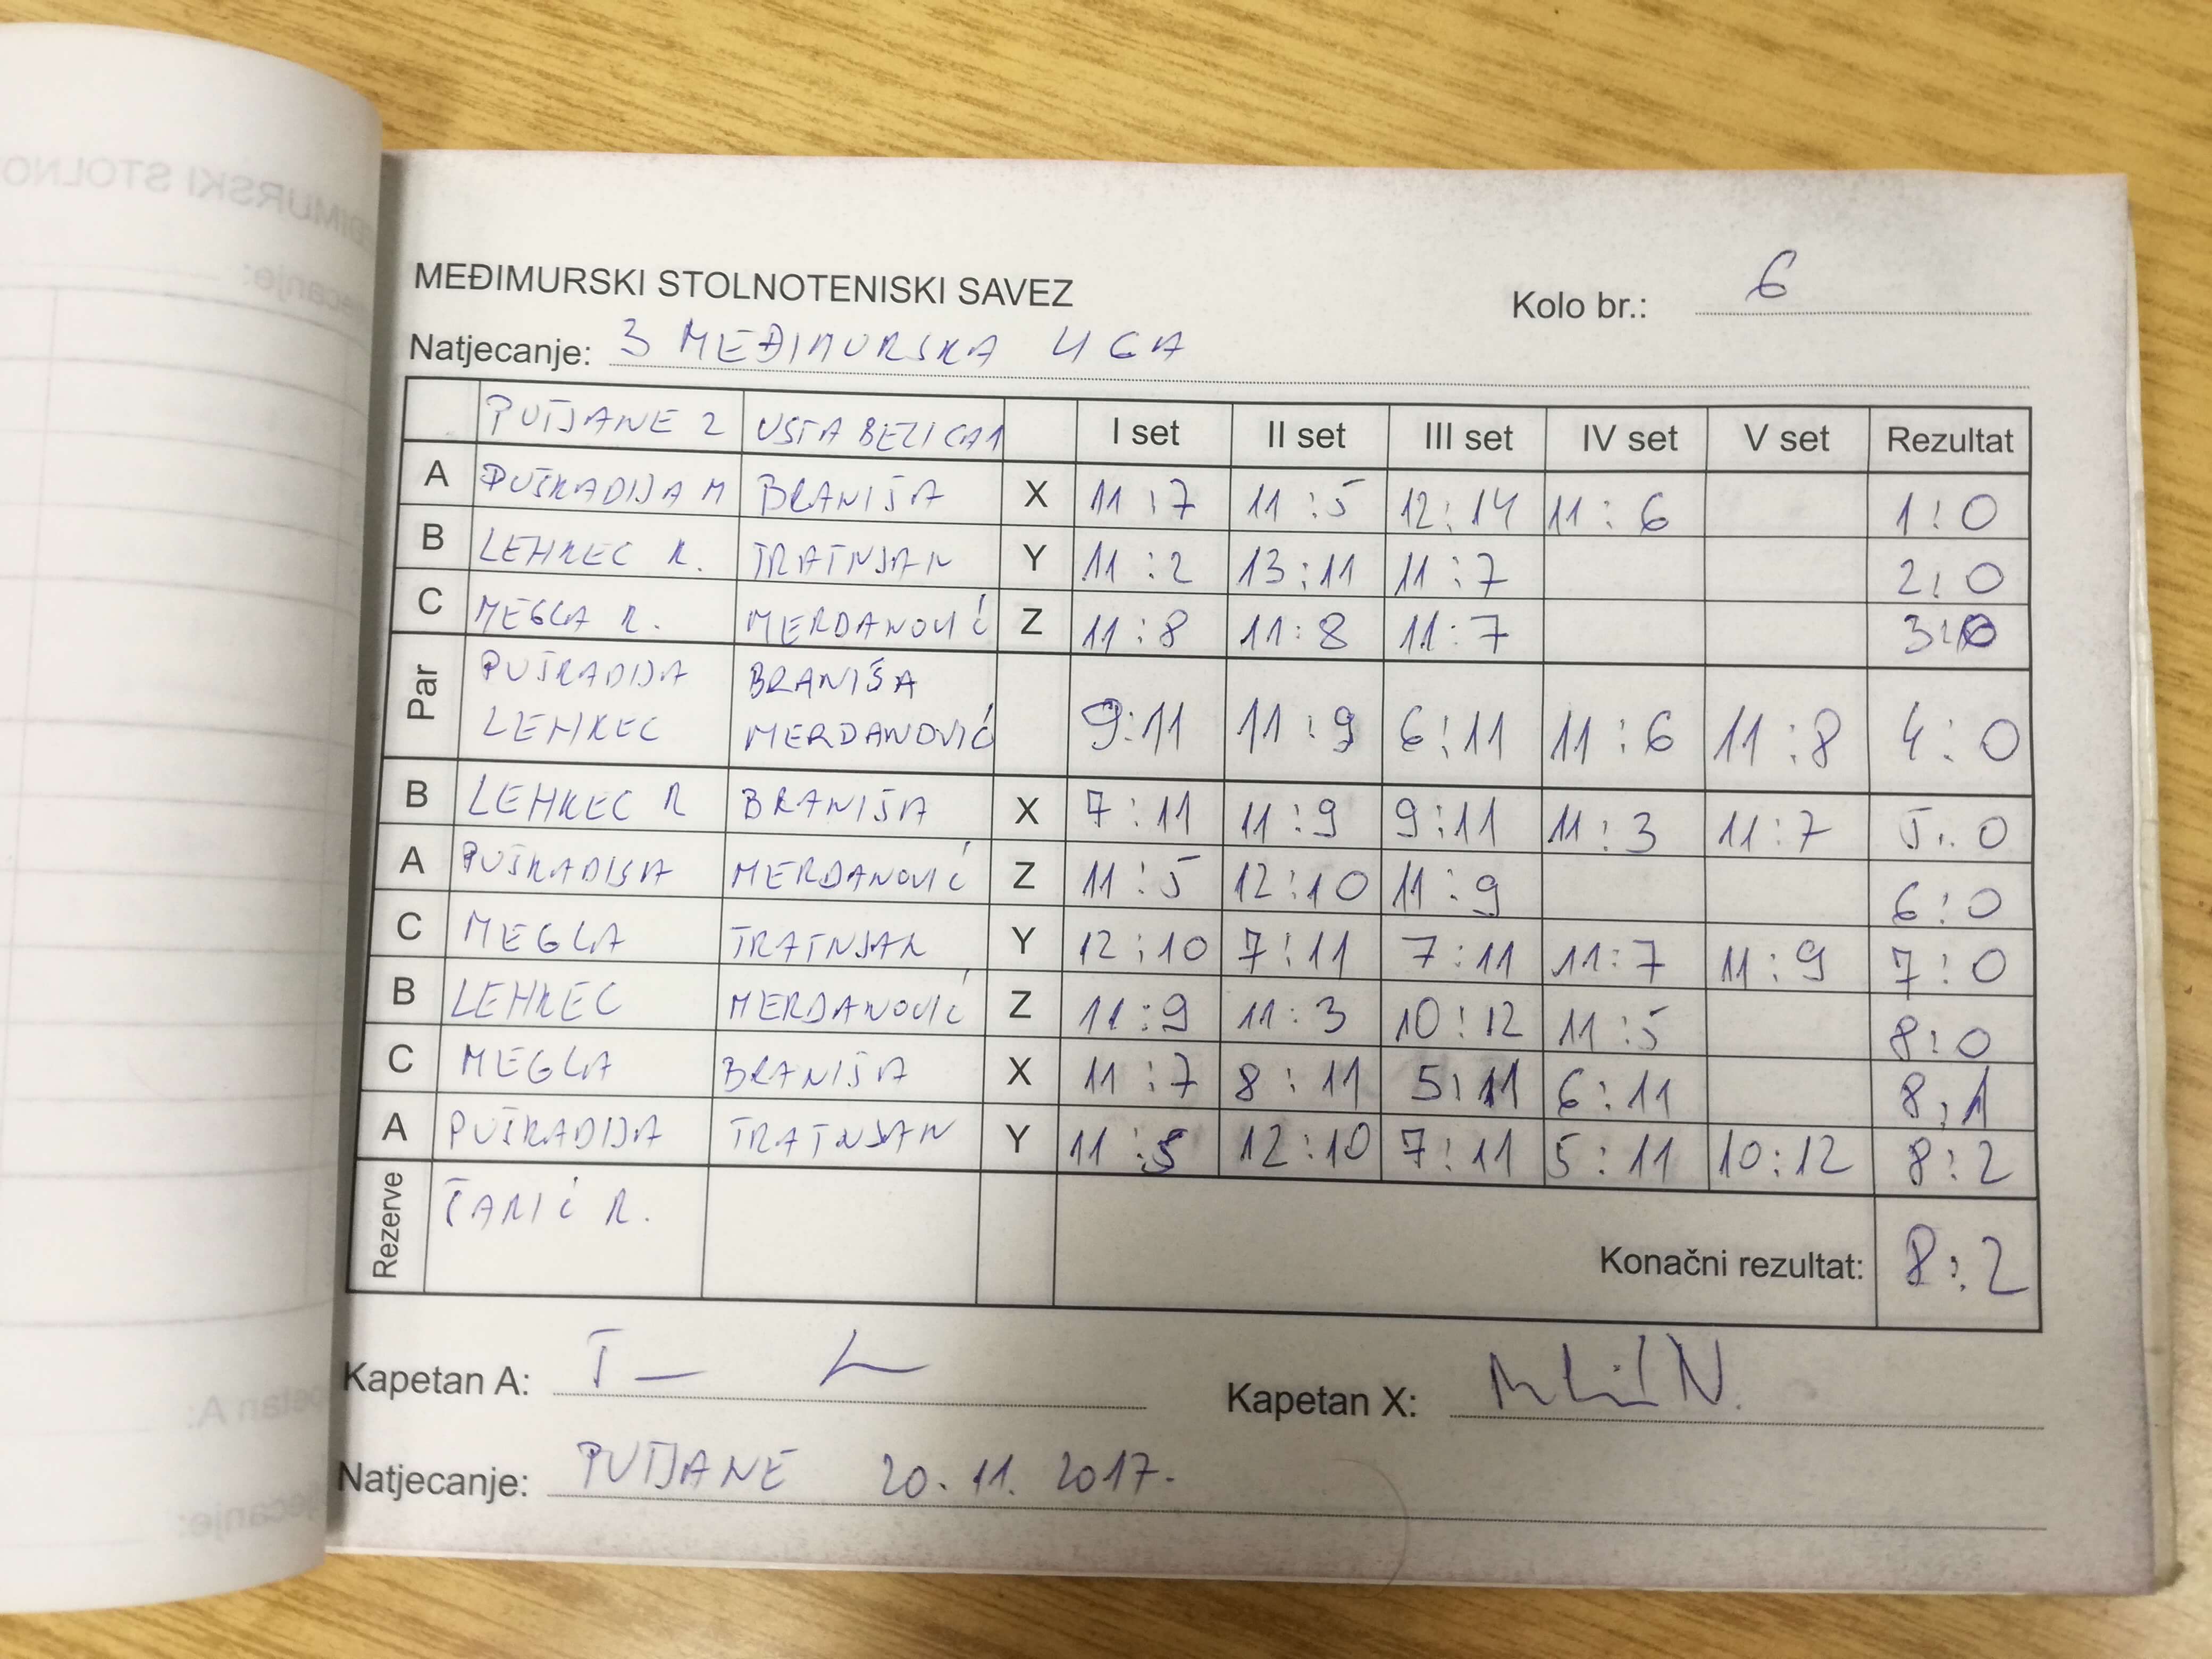 MEĐIMURSKI STOLNOTENISKI SAVEZ
Kolo br.: 6
Natjecanje: 3 MEĐIMURSKA LIGA
PUŠĆANE 2 USTA BEZ LICA 1 I set II set III set IV set V set Rezultat
A PUŠKADIJA M BRANIŠA X 11:7 11:5 12:14 11:6 1:0
B LEHKEC R. TRATNJAN Y 11:2 13:11 11:7 2:0
C MEGLA R. MERDANOVIĆ Z 11:8 11:8 11:7 3:0
Par PUŠKADIJA BRANIŠA
LEHKEC MERDANOVIĆ 9:11 11:9 6:11 11:6 11:8 4:0
B LEHKEC R BRANIŠA X 7:11 11:9 9:11 11:3 11:7 5:0
A PUŠKADIJA MERDANOVIĆ Z 11:5 12:10 11:9 6:0
C MEGLA TRATNJAN Y 12:10 7:11 7:11 11:7 11:9 7:0
B LEHKEC MERDANOVIĆ Z 11:9 11:3 10:12 11:5 8:0
C MEGLA BRANIŠA X 11:7 8:11 5:11 6:11 8:1
A PUŠKADIJA TRATNJAN Y 11:5 12:10 7:11 5:11 10:12 8:2
Rezerve R.
Konačni rezultat: 8:2
Kapetan A:
Kapetan X:
Natjecanje: 20.11.2017.